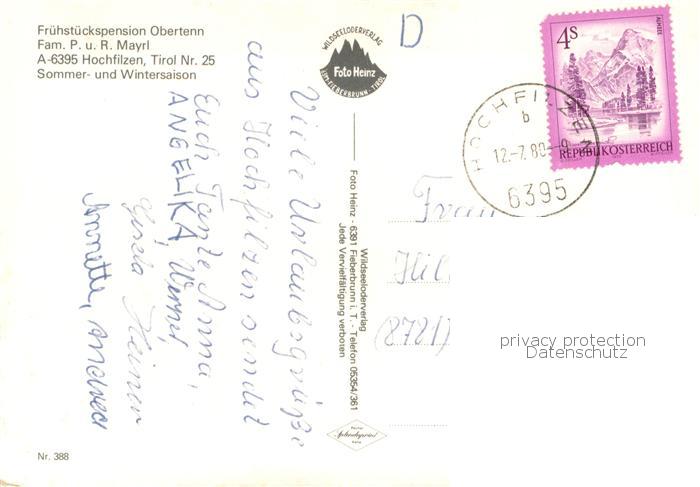 Frühstückspension Obertenn
Fam. P. u. R. Mayrl
A-6395 Hochfilzen, Tirol Nr. 25
Sommer- und Wintersaison
Viele Urlaubsgrüße
aus Hochfilzen sendet
Euch Tante Anna,
ANGELIKA, Werner
Gisela Heiner
Annette, Andrea
Nr. 388
WILDSEELODERVERLAG
Foto Heinz
FIEBERBRUNN - TIROL
Foto Heinz - 6391 Fieberbrunn i. T. - Telefon 05354/361
Wildseeloderverlag
Jede Vervielfältigung verboten
D
4S
ALMSEE
REPUBLIK ÖSTERREICH
HOCHFILZEN
b
12.-7.80-9
6395
Frau
Hil
(8721)
privacy protection
Datenschutz